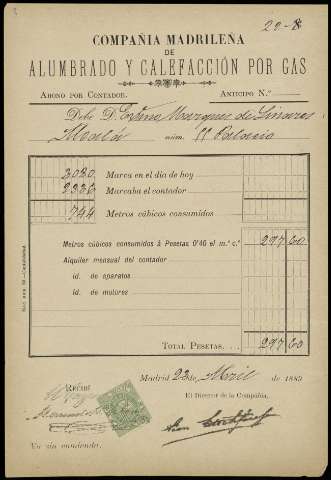 29-8
COMPAÑIA MADRILEÑA
DE
ALUMBRADO Y CALEFACCIÓN POR GAS
ABONO POR CONTADOR. ANTICIPO N.º
Debe D. Exmo Marques de Linares
Alcalá núm. Palacio
3080 Marca en el día de hoy
2336 Marcaba el contador
744 Metros cúbicos consumidos
Metros cúbicos consumidos á Pesetas 0'40 el m.³ c.º 297 60
Alquiler mensual del contador
id. de aparatos
id. de motores
TOTAL PESETAS. 297 60
Madrid 22 de Abril de 1889
RECIBÍ
El Director de la Compañía,
Va sin enmienda.